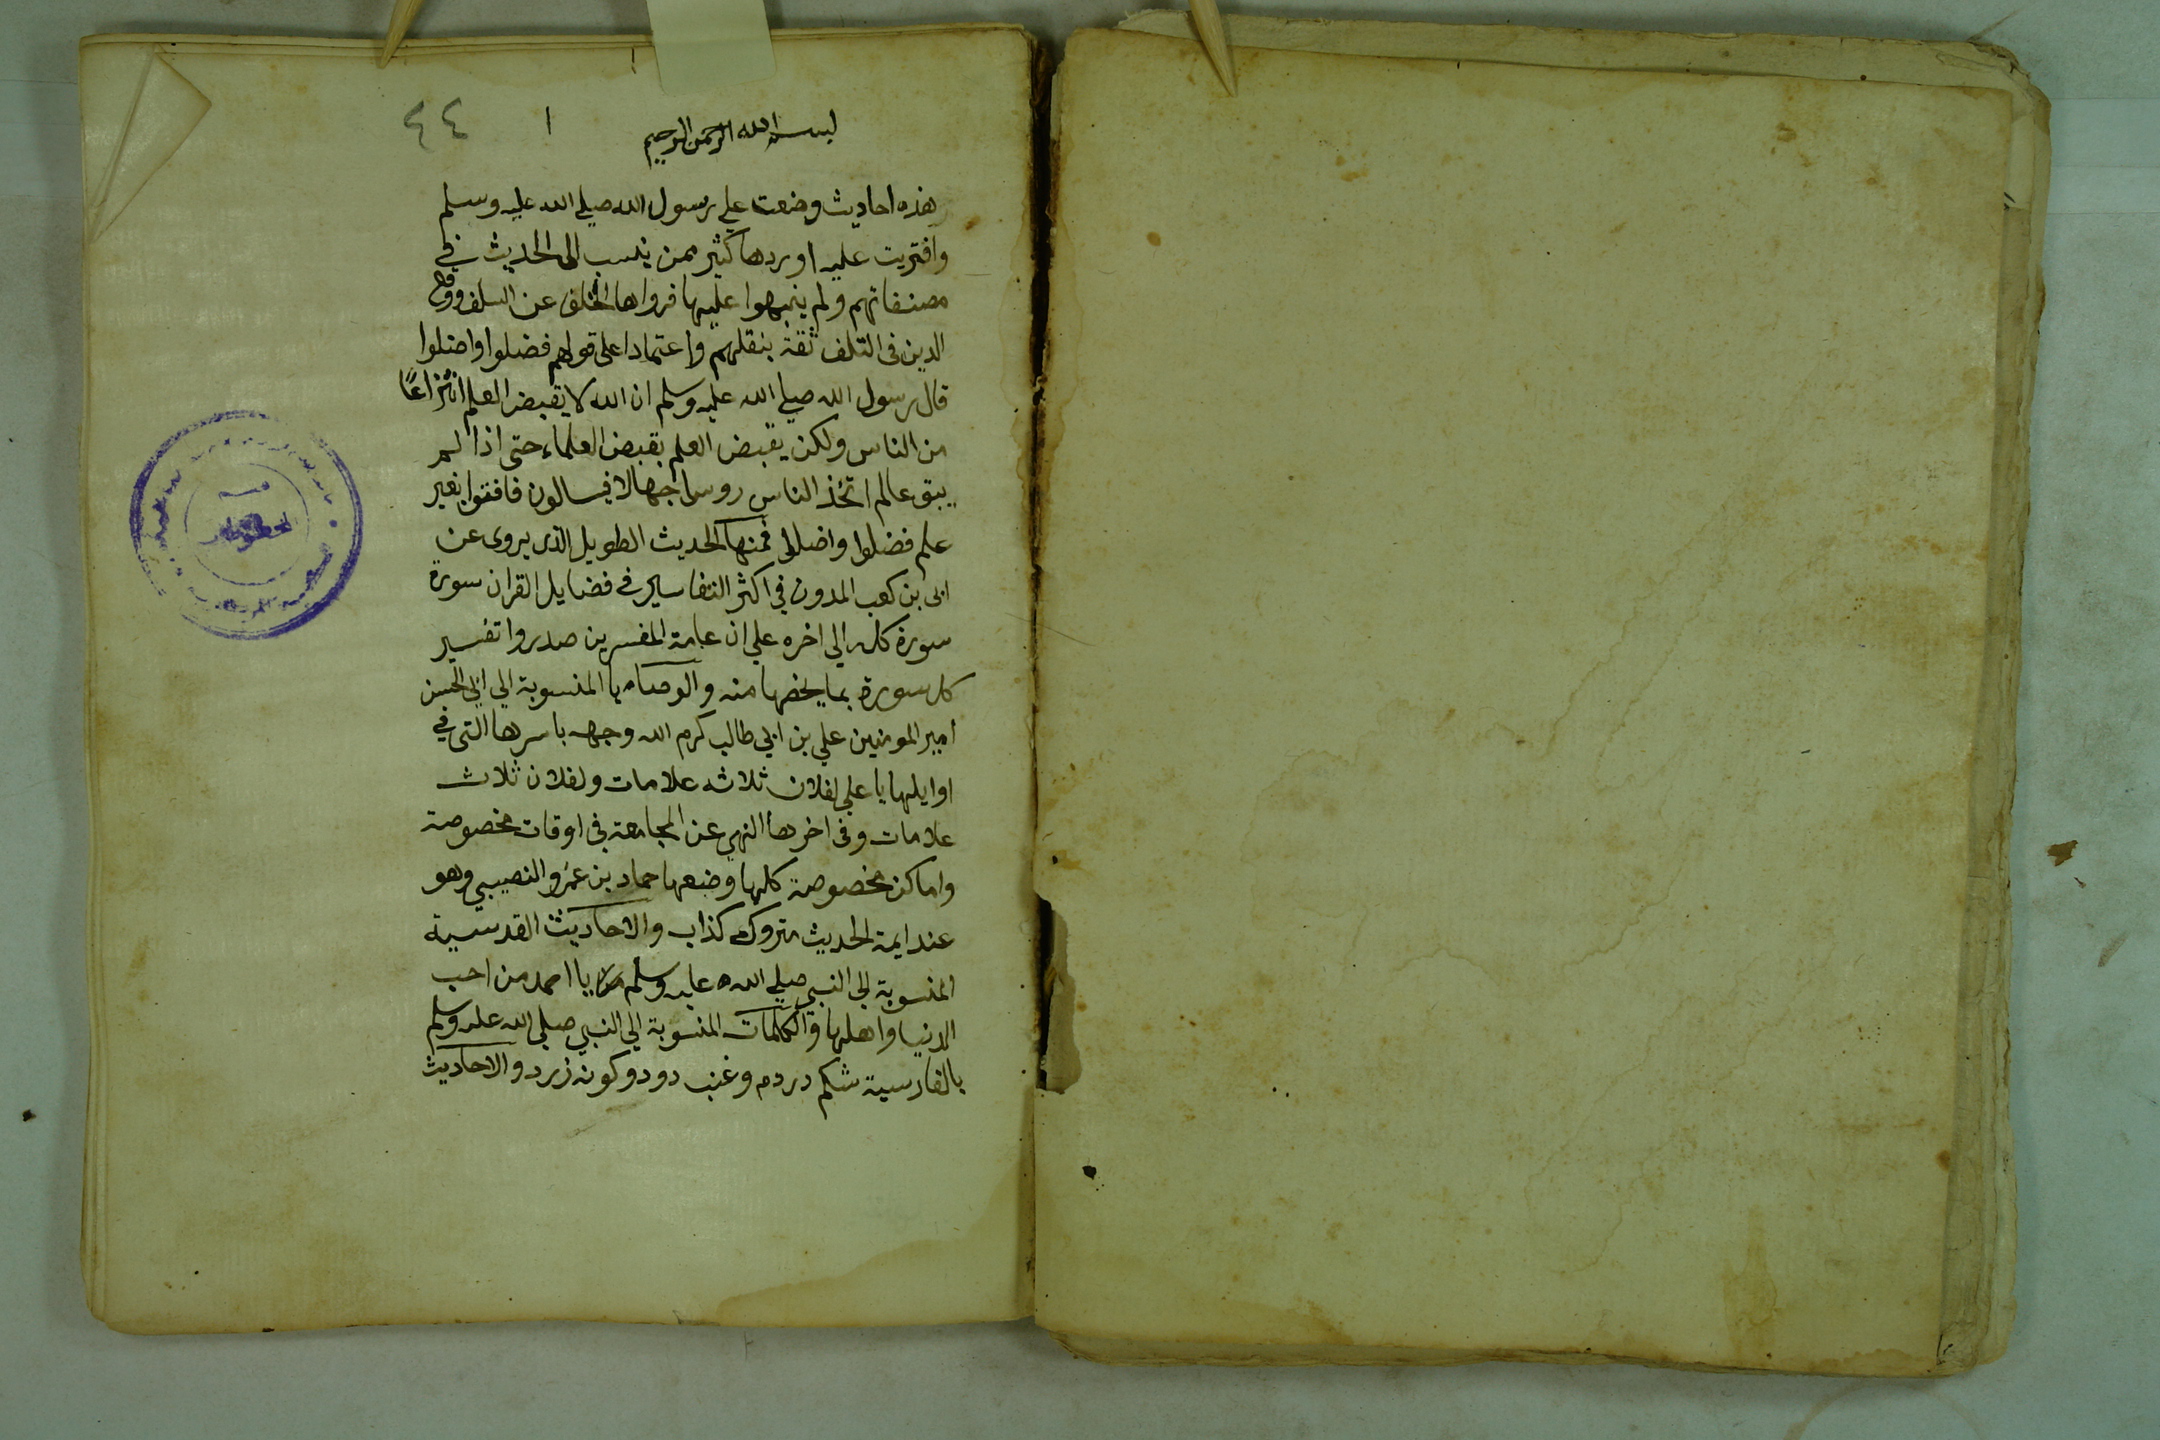 بسم الله الرحمن الرحيم
١
٤٤
هذه احاديث وضعت علي رسول الله صلي الله عليه وسلم
وافتريت عليه اوردها كثير ممن ينسب الى الحديث في
مصنفاتهم ولم ينبهوا عليها فرواها الخلف عن السلف ووقع
الدين فى التلف ثقة بنقلهم واعتمادا على قولهم فضلوا واضلوا
قال رسول الله صلي الله عليه وسلم ان الله لا يقبض العلم انتزاعًا
من الناس ولكن يقبض العلم بقبض العلماء حتى اذا لم
يبق عالم اتخذ الناس روسا جهالا فيسالون فافتوا بغير
علم فضلوا واضلوا فمنها الحديث الطويل الذى يروى عن
ابى بن كعب المدون في اكثر التفاسير في فضايل القران سورة
سورة كل الي اخره علي ان عامة المفسرين صدروا تفسير
كل سورة بما يخصها منه والوصايا المنسوبة الي ابي الحسن
امير المومنين علي بن ابي طالب كرم الله وجهه باسرها التى في
اوايلها يا علي لفلان ثلاثه علامات ولفلان ثلاث
علامات وفى اخرها النهي عن المجامعة فى اوقات مخصوصة
واماكن مخصوصة كلها وضعها حماد بن عمرو النصيبي وهو
عند ايمة الحديث متروك كذاب والاحاديث القدسية
المنسوبة الى النبي صلي الله عليه وسلم يا احمد من احب
الدنيا واهلها والكلمات المنسوبة الي النبي صلي الله عليه وسلم
بالفارسية شكم دردم وعنب دودو كونه زرد والاحاديث
قسم